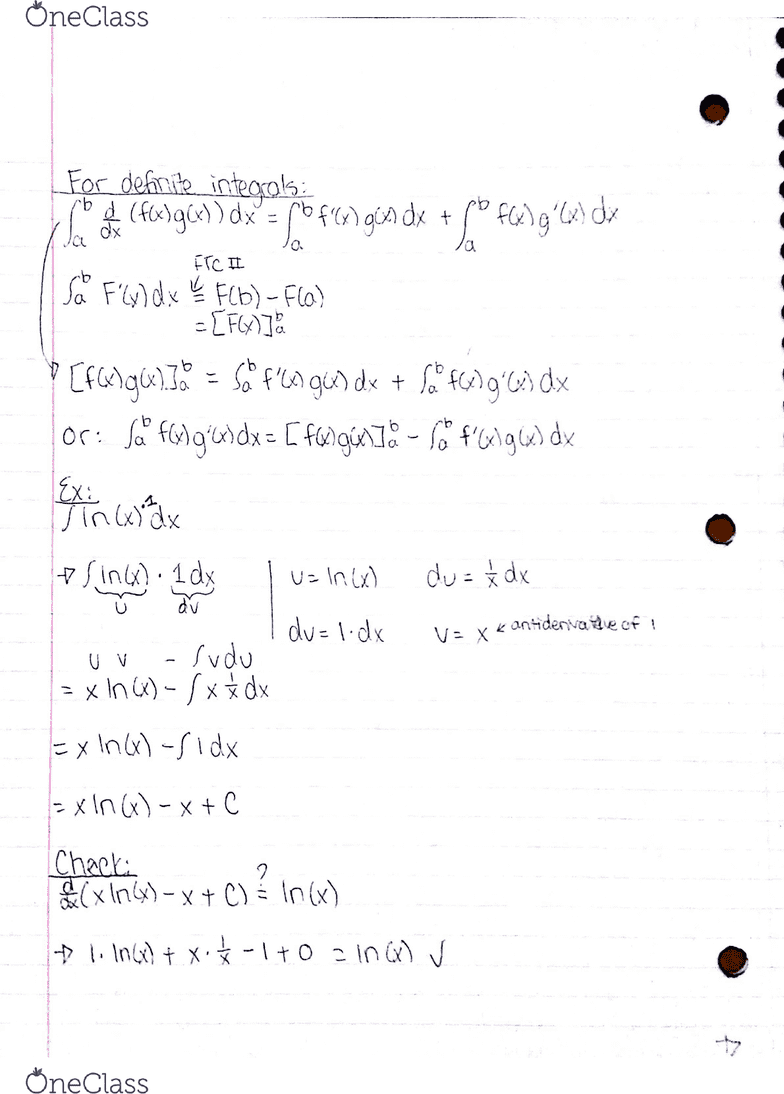 OneClass
For definite integrals:
∫ₐᵇ d/dx (f(x)g(x)) dx = ∫ₐᵇ f'(x) g(x) dx + ∫ₐᵇ f(x) g'(x) dx
FTC II
∫ₐᵇ F'(x) dx = F(b) - F(a)
= [F(x)]ₐᵇ
[f(x)g(x)]ₐᵇ = ∫ₐᵇ f'(x) g(x) dx + ∫ₐᵇ f(x) g'(x) dx
or: ∫ₐᵇ f(x)g'(x)dx = [f(x)g(x)]ₐᵇ - ∫ₐᵇ f'(x)g(x) dx
Ex:
∫ ln(x)·1 dx
→ ∫ ln(x) · 1 dx | u = ln(x) du = 1/x dx
u dv
dv = 1·dx v = x ← antiderivative of 1
u v - ∫ v du
= x ln(x) - ∫ x 1/x dx
= x ln(x) - ∫ 1 dx
= x ln(x) - x + C
Check:
d/dx (x ln(x) - x + C) ?= ln(x)
→ 1· ln(x) + x · 1/x - 1 + 0 = ln(x) ✓
OneClass